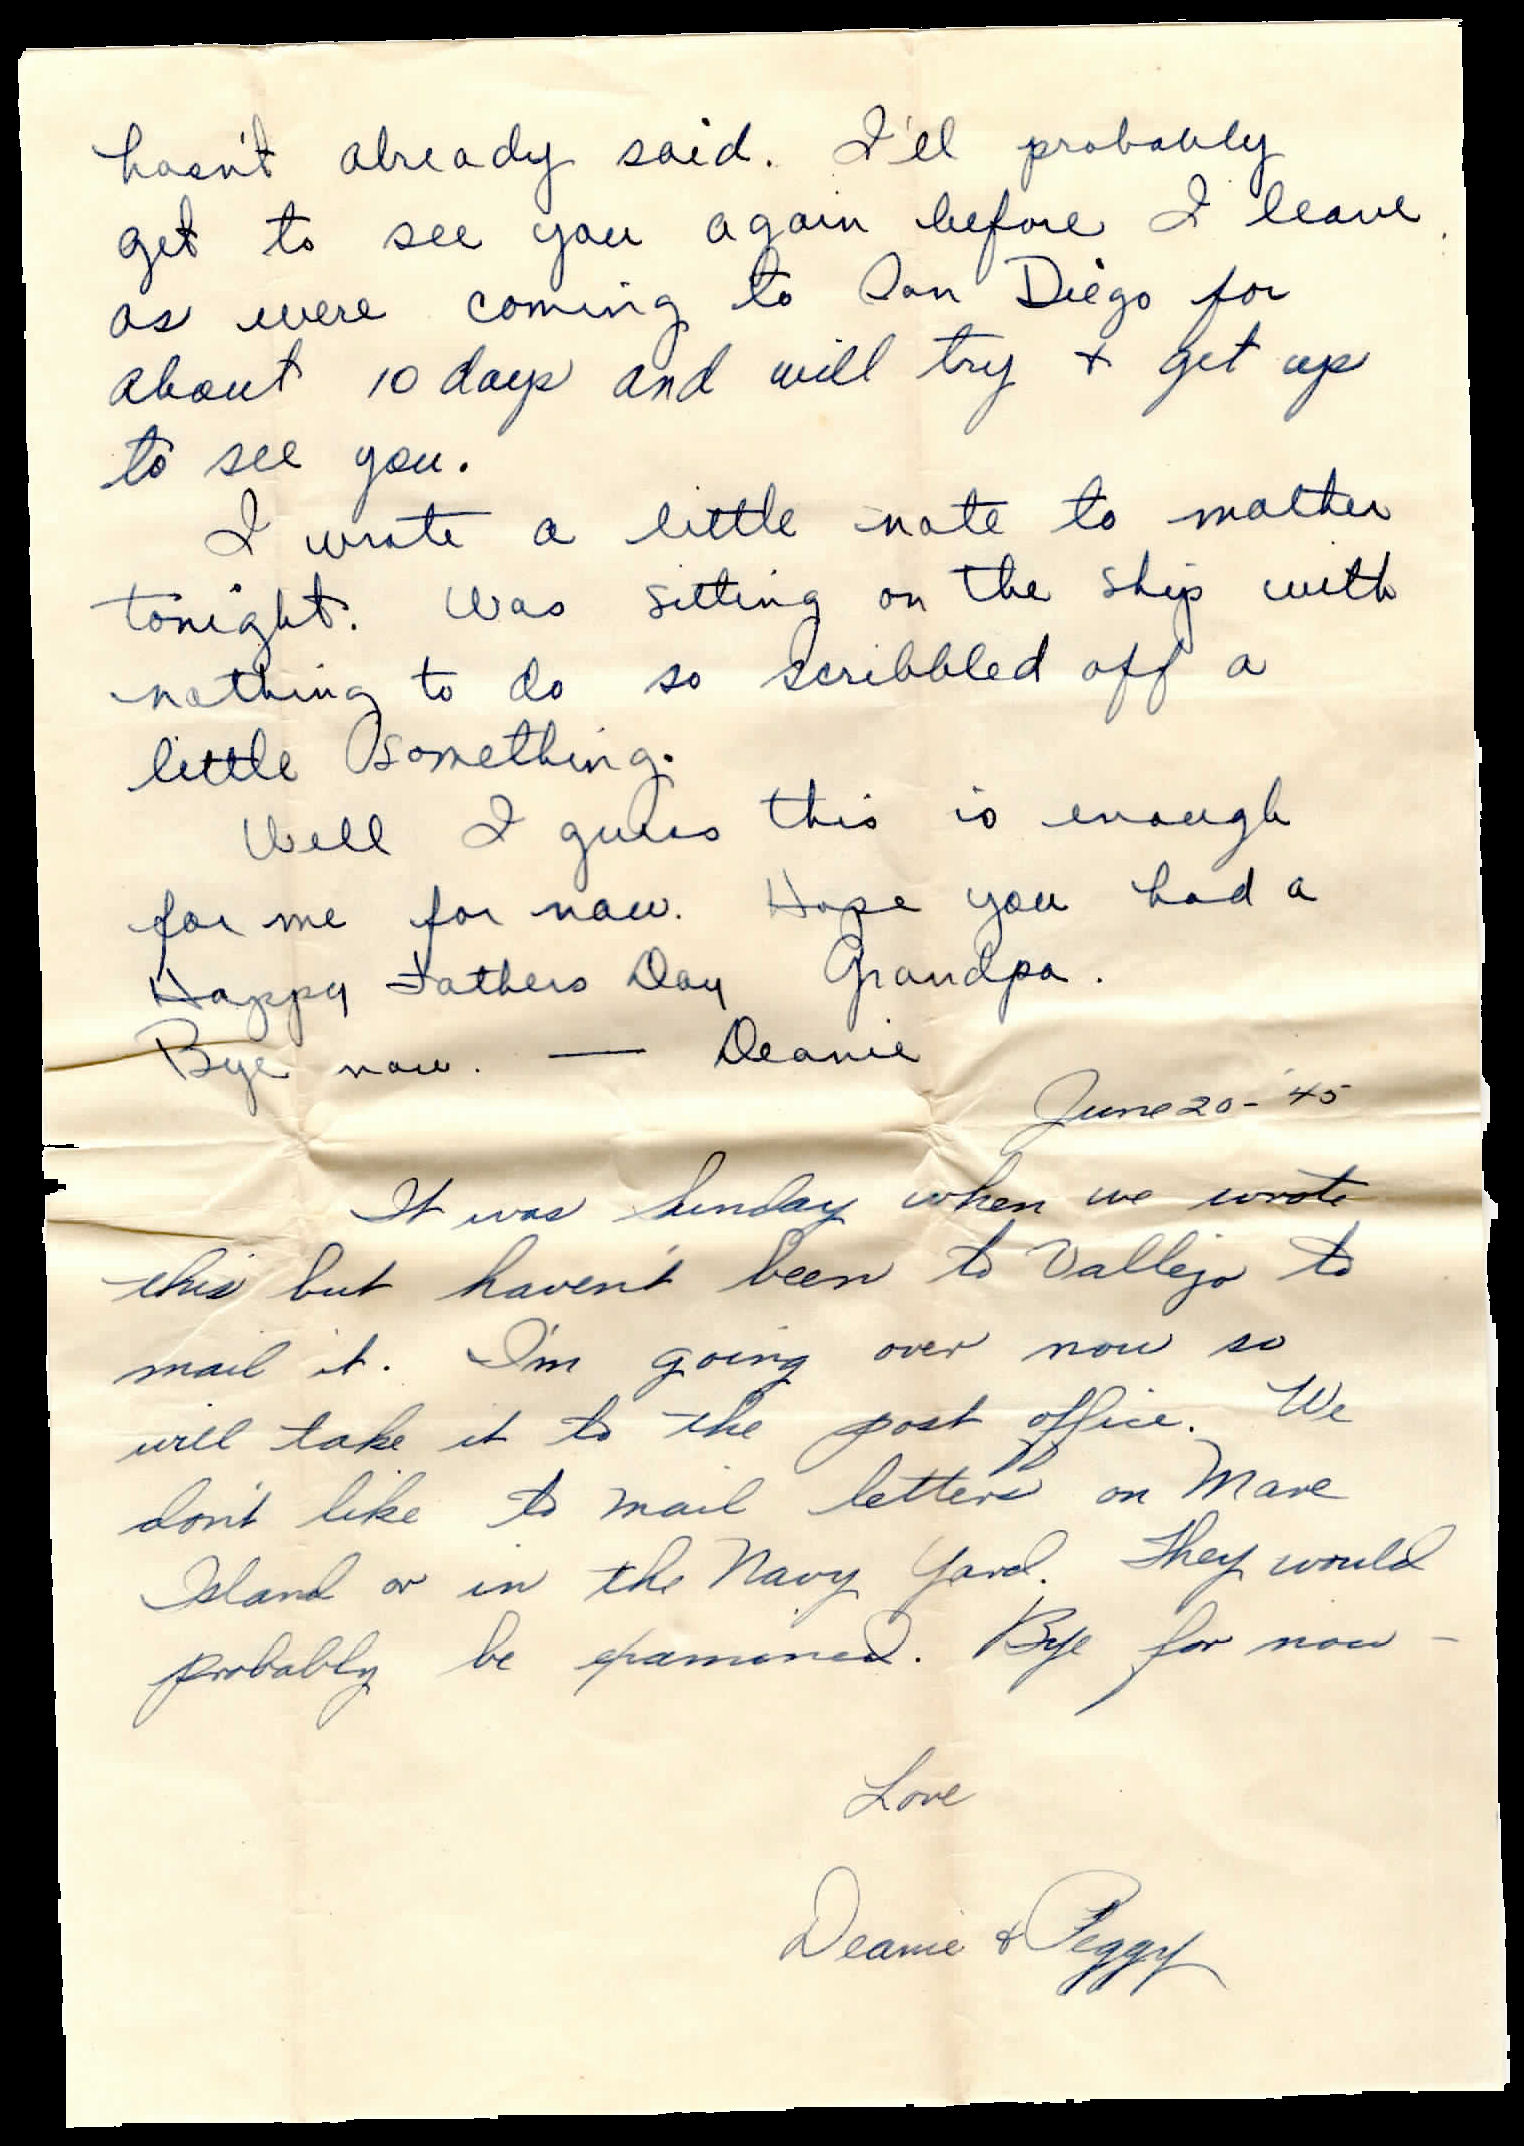 hasn't already said. I'll probably
get to see you again before I leave
as were coming to San Diego for
about 10 days and will try + get up
to see you.
I wrote a little note to mother
tonight. Was sitting on the ship with
nothing to do so scribbled off a
little something.
Well I guess this is enough
for me for now. Hope you had a
Happy Fathers Day Grandpa.
Bye now. — Deanie
June 20 - '45
It was Sunday when we wrote
this but haven't been to Vallejo to
mail it. I'm going over now so
will take it to the post office. We
don't like to mail letters on Mare
Island or in the Navy Yard. They would
probably be examined. Bye for now -
Love
Deanie & Peggy